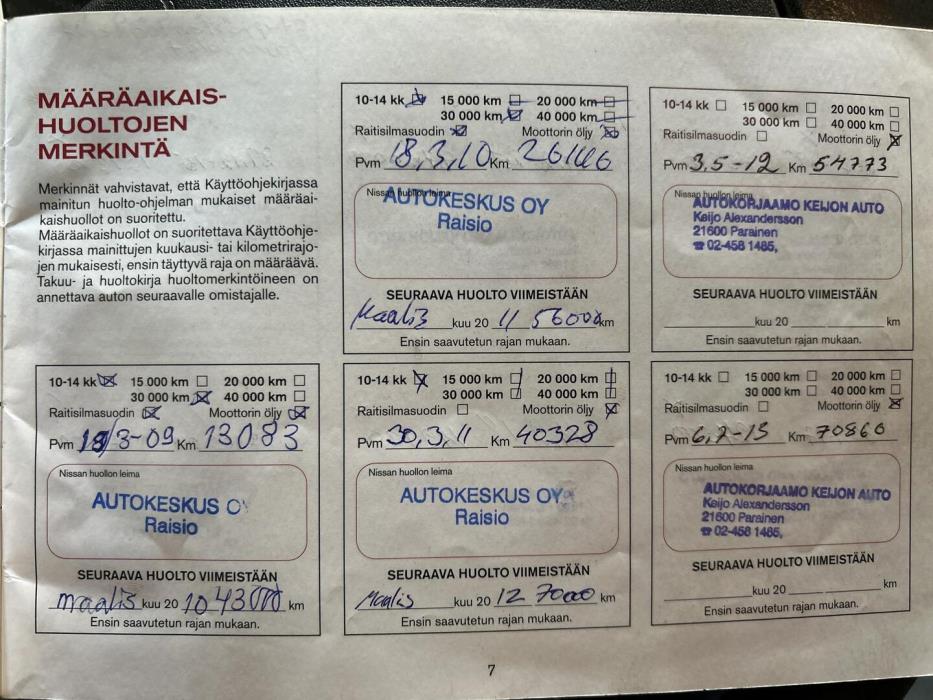 MÄÄRÄAIKAIS-
HUOLTOJEN
MERKINTÄ
Merkinnät vahvistavat, että Käyttöohjekirjassa
mainitun huolto-ohjelman mukaiset määräai-
kaishuollot on suoritettu.
Määräaikaishuollot on suoritettava Käyttöohje-
kirjassa mainittujen kuukausi- tai kilometrirajo-
jen mukaisesti, ensin täyttyvä raja on määräävä.
Takuu- ja huoltokirja huoltomerkintöineen on
annettava auton seuraavalle omistajalle.
10-14 kk 15 000 km 20 000 km
30 000 km 40 000 km
Raitisilmasuodin Moottorin öljy
Pvm 13/3-09 Km 13083
Nissan huollon leima
AUTOKESKUS OY
Raisio
SEURAAVA HUOLTO VIIMEISTÄÄN
maalis kuu 20 10 43000 km
Ensin saavutetun rajan mukaan.
10-14 kk 15 000 km 20 000 km
30 000 km 40 000 km
Raitisilmasuodin Moottorin öljy
Pvm 18,3,10 Km 26146
Nissan huollon leima
AUTOKESKUS OY
Raisio
SEURAAVA HUOLTO VIIMEISTÄÄN
Maalis kuu 20 11 56000 km
Ensin saavutetun rajan mukaan.
10-14 kk 15 000 km 20 000 km
30 000 km 40 000 km
Raitisilmasuodin Moottorin öljy
Pvm 30,3,11 Km 40328
Nissan huollon leima
AUTOKESKUS OY
Raisio
SEURAAVA HUOLTO VIIMEISTÄÄN
Maalis kuu 20 12 70000 km
Ensin saavutetun rajan mukaan.
10-14 kk 15 000 km 20 000 km
30 000 km 40 000 km
Raitisilmasuodin Moottorin öljy
Pvm 3,5-12 Km 54773
Nissan huollon leima
AUTOKORJAAMO KEIJON AUTO
Keijo Alexandersson
21600 Parainen
☎ 02-458 1485,
SEURAAVA HUOLTO VIIMEISTÄÄN
kuu 20 km
Ensin saavutetun rajan mukaan.
10-14 kk 15 000 km 20 000 km
30 000 km 40 000 km
Raitisilmasuodin Moottorin öljy
Pvm 6,2-13 Km 70860
Nissan huollon leima
AUTOKORJAAMO KEIJON AUTO
Keijo Alexandersson
21600 Parainen
☎ 02-458 1485,
SEURAAVA HUOLTO VIIMEISTÄÄN
kuu 20 km
Ensin saavutetun rajan mukaan.
7